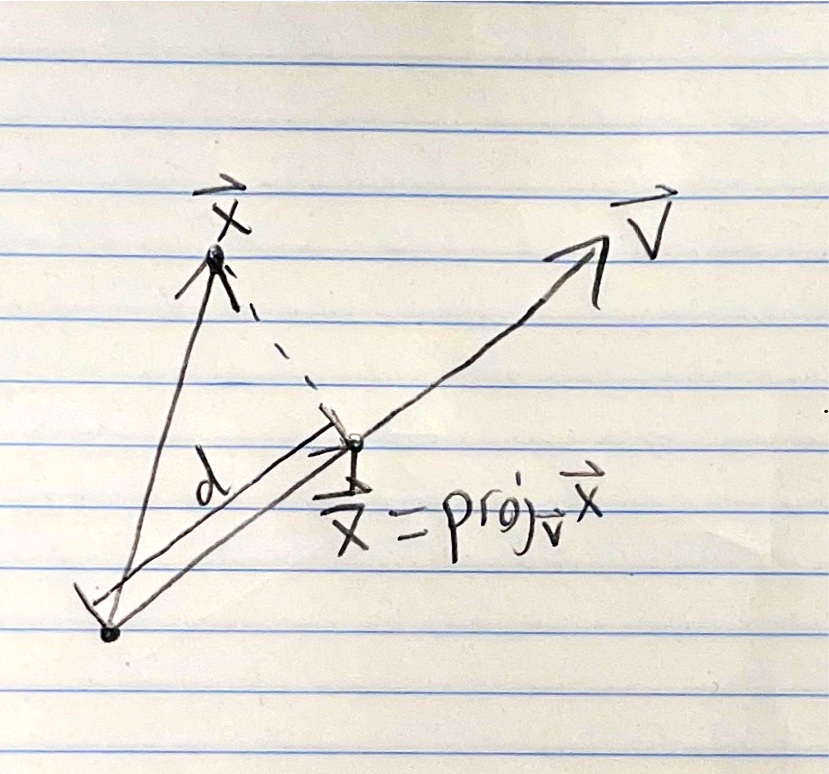 x⃗
v⃗
d
x̅⃗ = proj_v⃗ x⃗